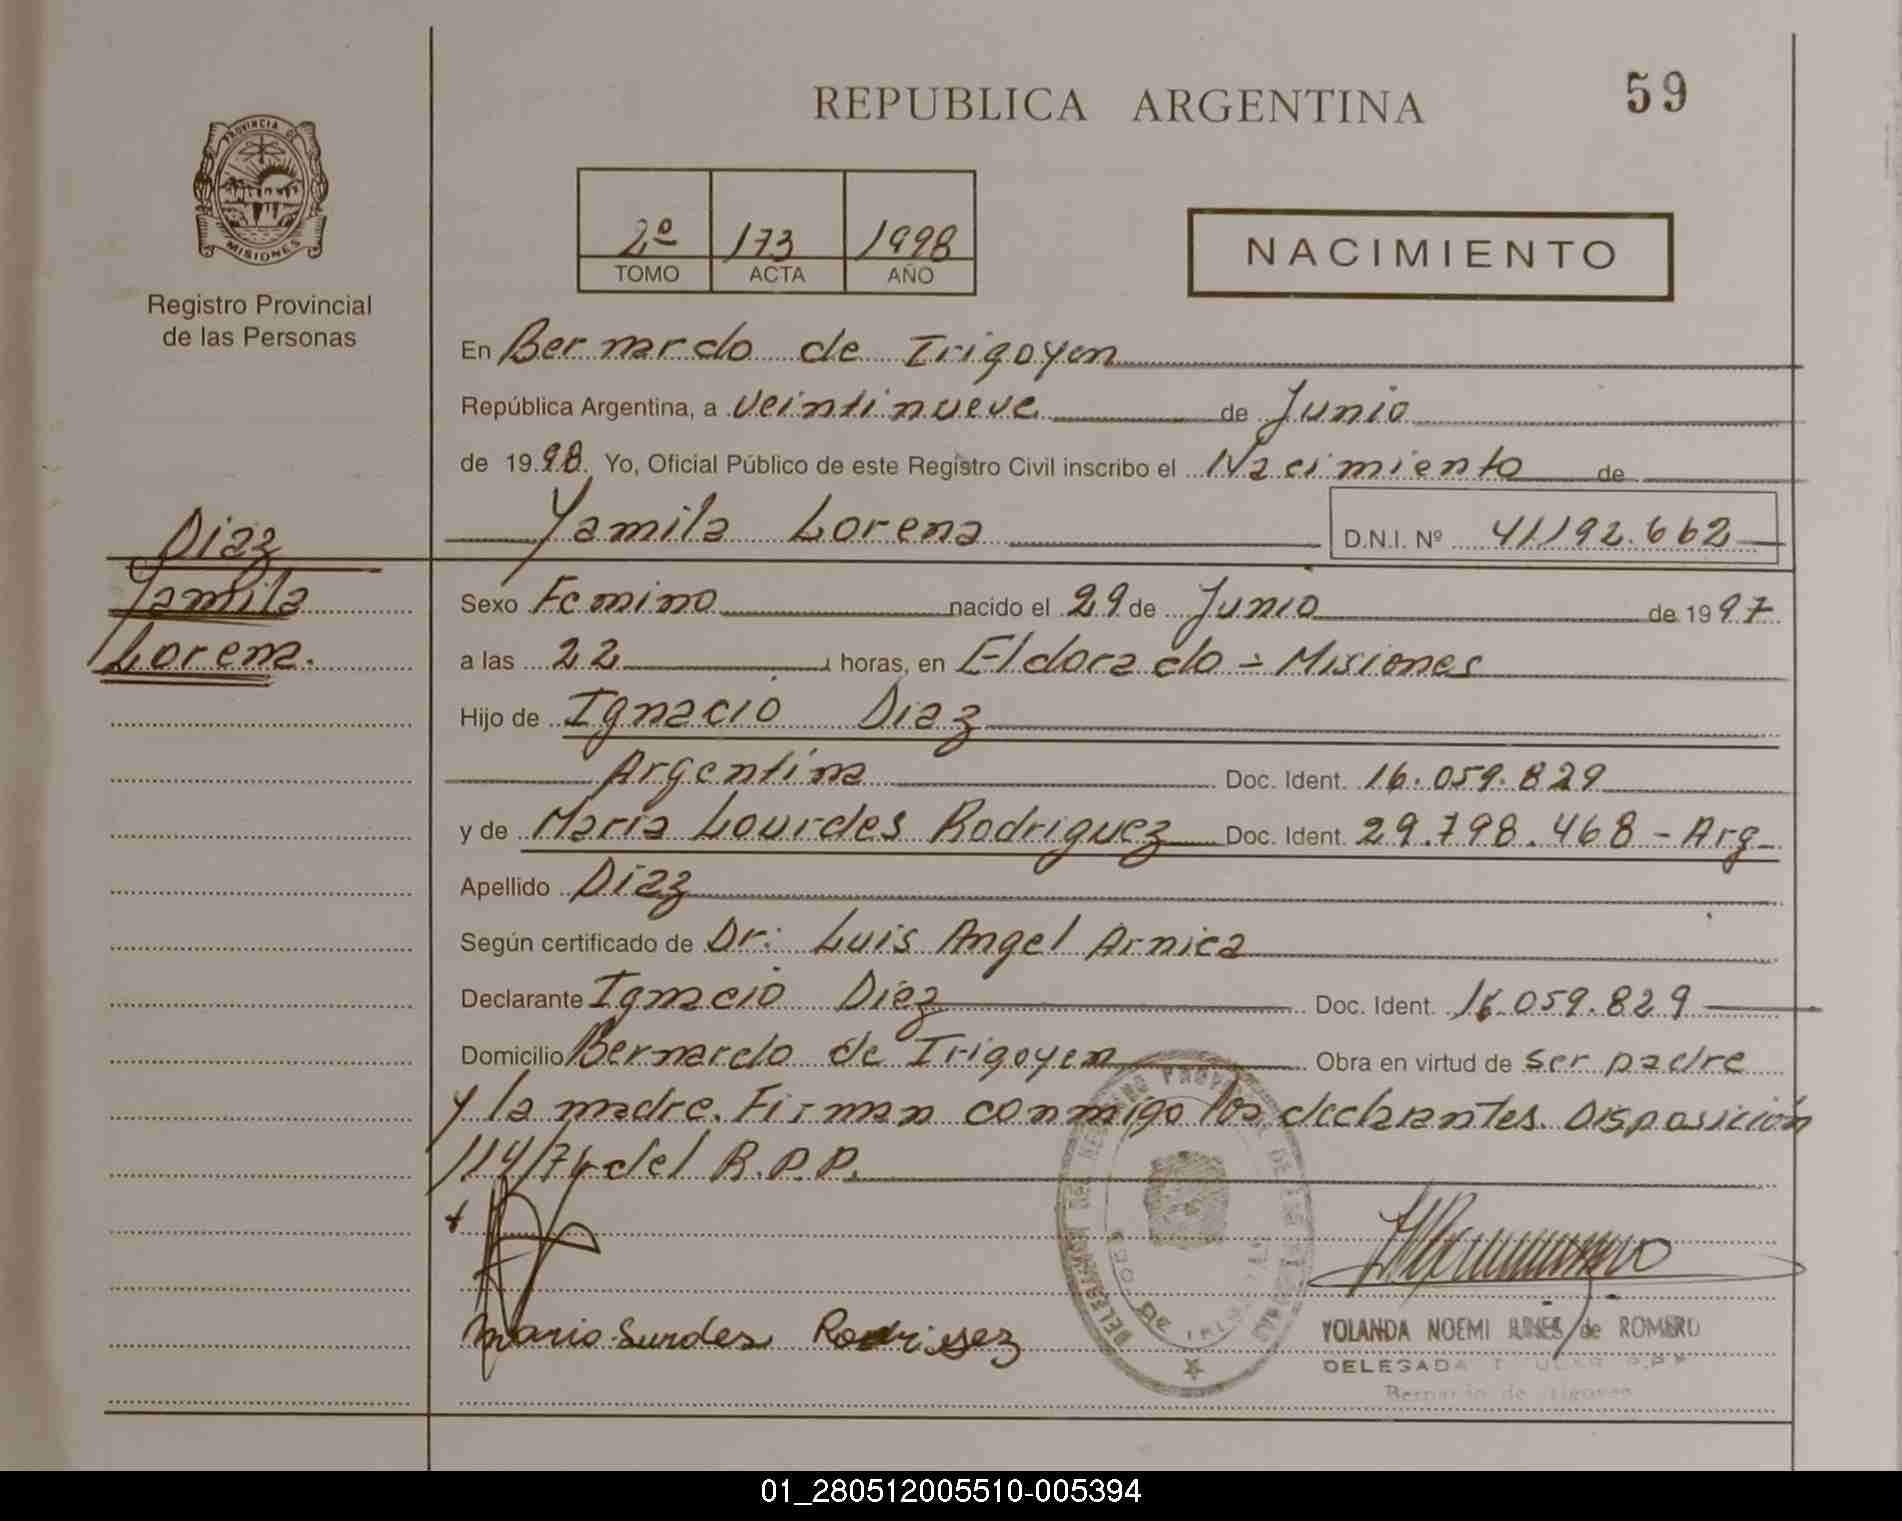 REPUBLICA ARGENTINA
59
PROVINCIA DE
MISIONES
Registro Provincial
de las Personas
2º 173 1998
TOMO ACTA AÑO
NACIMIENTO
En Bernardo de Irigoyen
República Argentina, a veintinueve de Junio
de 1998. Yo, Oficial Público de este Registro Civil inscribo el Nacimiento de
Yamila Lorena D.N.I. Nº 41192.662
Diaz
Yamila
Lorena.
Sexo Femino nacido el 29 de Junio de 1997
a las 22 horas, en Eldorado - Misiones
Hijo de Ignacio Diaz
Argentina Doc. Ident. 16.059.829
y de Maria Lourdes Rodriguez Doc. Ident. 29.798.468 - Arg
Apellido Diaz
Según certificado de Dr: Luis Angel Arnica
Declarante Ignacio Diaz Doc. Ident. 16.059.829
Domicilio Bernardo de Irigoyen Obra en virtud de ser padre
y la madre. Firman conmigo los declarantes. Disposición
114/74 del R.P.P.
Mario Surdes Rodrigez
YOLANDA NOEMI de ROMERO
DELEGADA
Bernardo de Irigoyen
01_280512005510-005394